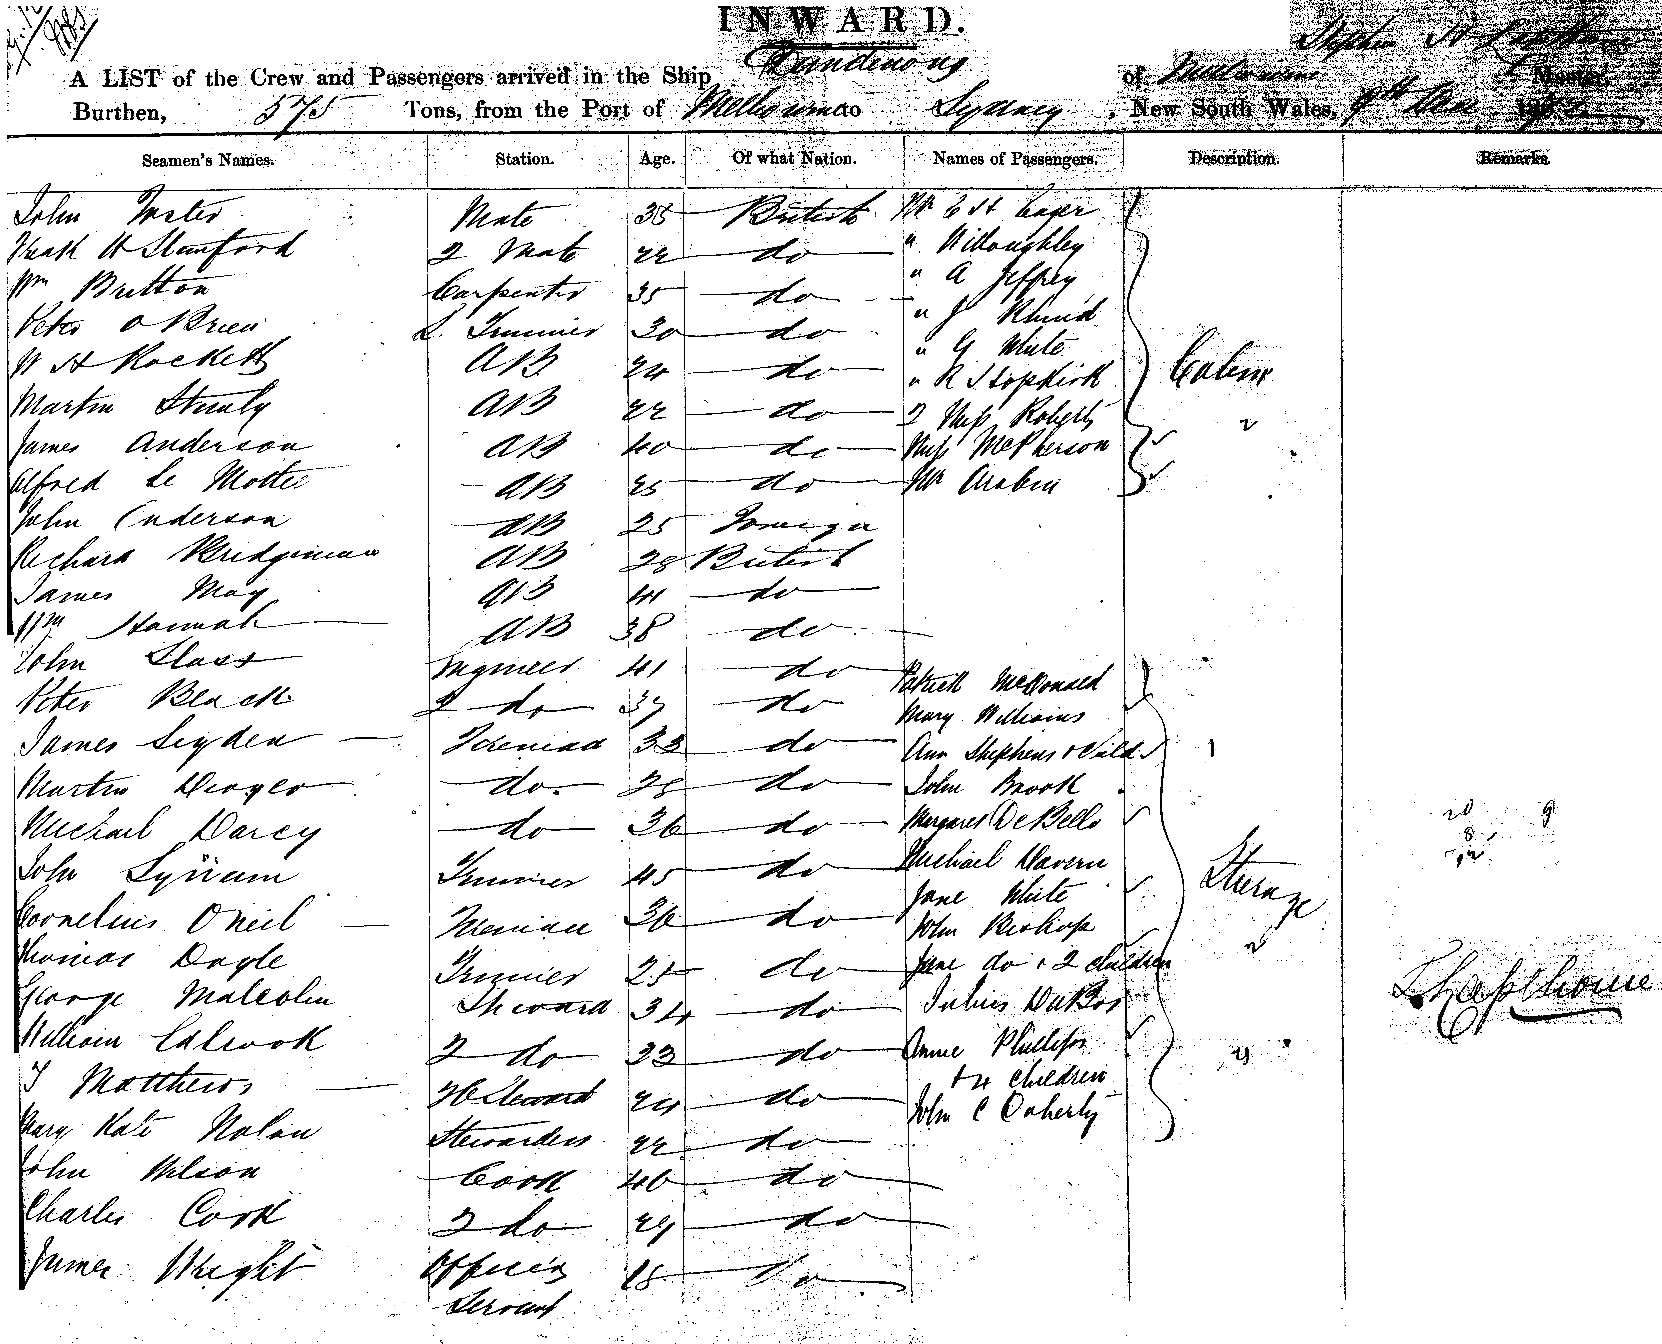 INWARD.
A LIST of the Crew and Passengers arrived in the Ship Dandenong of Melbourne Master
Burthen, 575 Tons, from the Port of Melbourne to Sydney, New South Wales, 9th
Seamen's Names. Station. Age. Of what Nation. Names of Passengers. Description. Remarks.
John Mate 35 British Mr E H
H Stamford 2 Mate 22 do " Willoughby
Wm Britton Carpenter 35 do " A Jeffrey
Peter O Brien 30 do " J
W H Rockett AB 24 do " G White
Martin AB 22 do " R J Hopkirk
James Anderson AB 40 do 2 Miss Roberts
Alfred Le Motte AB 25 do Miss McPherson
John Anderson AB 25 Mr Arabin
Richard Bridgeman AB 28 British
James May AB 41 do
Wm Hannah AB 38 do
John Engineer 41 do Patrick McDonald
Peter Black 2 do 37 do Mary Williams
James Fireman 33 do Ann Stephens + Child
Martin do 28 do John Brook
Michael Darcy do 36 do Margaret De Bello
John Trimmer 45 do Michael Davern
Cornelius O'Neil Fireman 36 do Jane White
Thomas Doyle Trimmer 25 do John Bishop
George Malcolm Steward 34 do Jane do + 2 children
William 2 do 33 do Julius
T Matthews Steward 24 do Annie Phillips
+ 4 children
Mary Kate Nolan Stewardess 22 do John C Doherty
John Wilson Cook 46 do
Charles Cook 2 do 29 do
James Wright Officers 18 do
Servant